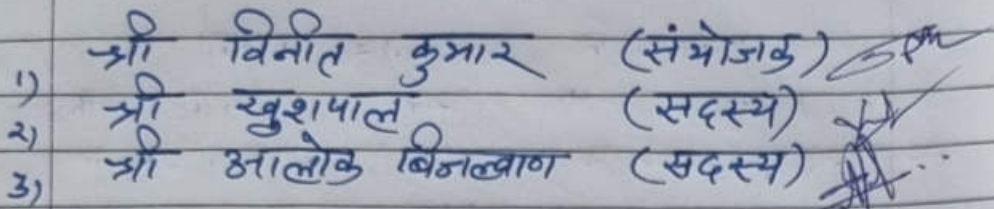 1) श्री विनीत कुमार (संयोजक)
2) श्री खुशपाल (सदस्य)
3) श्री आलोक बिजल्वाण (सदस्य)